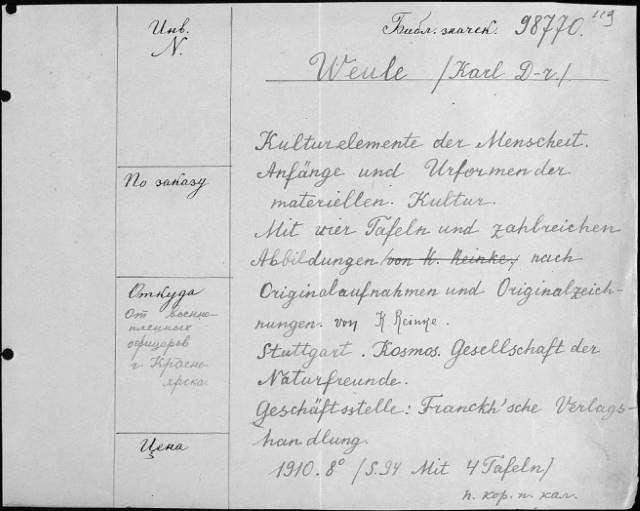 Инв.
N.
По заказу
Откуда
От военно-
пленных
офицеров
г. Красно-
ярска.
Цена
Библ. значек. 98770.
Weule /Karl D-r./
Kulturelemente der Menscheit.
Anfänge und Urformen der
materiellen Kultur.
Mit vier Tafeln und zahlreichen
Abbildungen von K. Reinke, nach
Originalaufnahmen und Originalzeich-
nungen. von K Reinke.
Stuttgart. Kosmos. Gesellschaft der
Naturfreunde.
Geschäftsstelle: Franckh'sche Verlags-
handlung
1910. 8° /S.94 Mit 4 Tafeln/